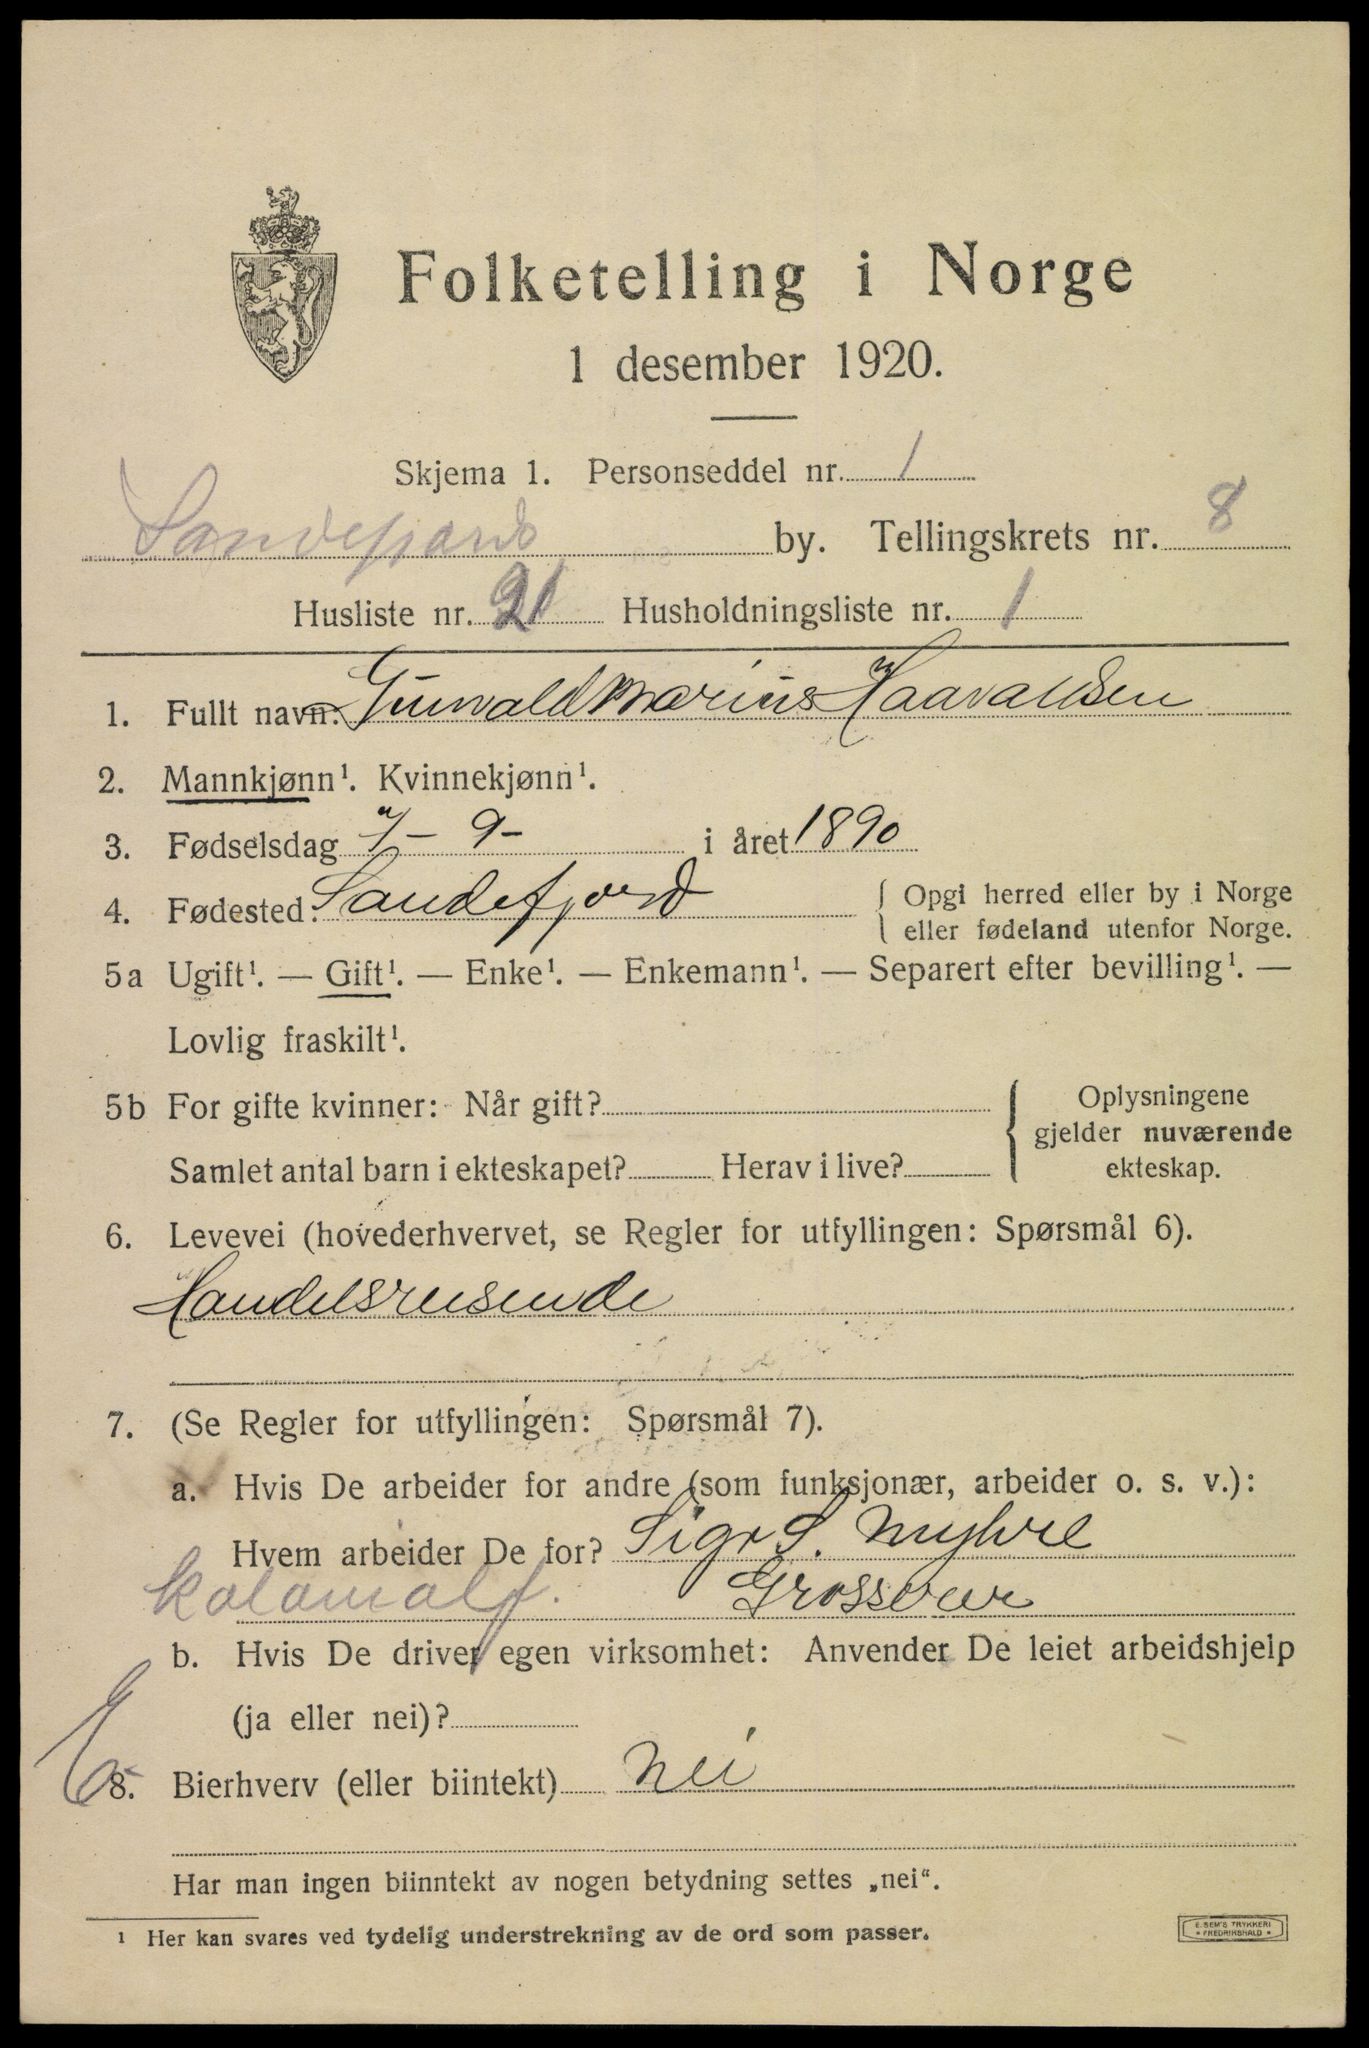 Folketelling i Norge
1 desember 1920.
Skjema 1. Personseddel nr. 1
Sandefjord by. Tellingskrets nr. 8
Husliste nr. 21 Husholdningsliste nr. 1
1. Fullt navn: Gunvald Marius Haavaldsen
2. Mannkjønn¹. Kvinnekjønn¹.
3. Fødselsdag 7 - 9 - i året 1890
4. Fødested: Sandefjord { Opgi herred eller by i Norge
{ eller fødeland utenfor Norge.
5a Ugift¹. — Gift¹. — Enke¹. — Enkemann¹. — Separert efter bevilling¹. —
Lovlig fraskilt¹.
5b For gifte kvinner: Når gift?
Samlet antal barn i ekteskapet? Herav i live?
Oplysningene
gjelder nuværende
ekteskap.
6. Levevei (hovederhvervet, se Regler for utfyllingen: Spørsmål 6).
Handelsreisende
7. (Se Regler for utfyllingen: Spørsmål 7).
a. Hvis De arbeider for andre (som funksjonær, arbeider o. s. v.):
Hvem arbeider De for? Sigv S. Myhre
Grosserer
b. Hvis De driver egen virksomhet: Anvender De leiet arbeidshjelp
(ja eller nei)?
8. Bierhverv (eller biintekt) Nei
Har man ingen biinntekt av nogen betydning settes „nei“.
¹ Her kan svares ved tydelig understrekning av de ord som passer.
E. SEM'S TRYKKERI
* FREDRIKSHALD *